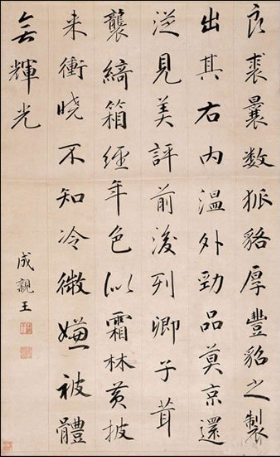 良裘曩數狐貉厚豐貂之製
出其右内温外勁品莫京還
從見美評前後列卿子茸
襲綺箱經年色似霜林黄披
来衝曉不知冷微嫌被體
無輝光
成親王